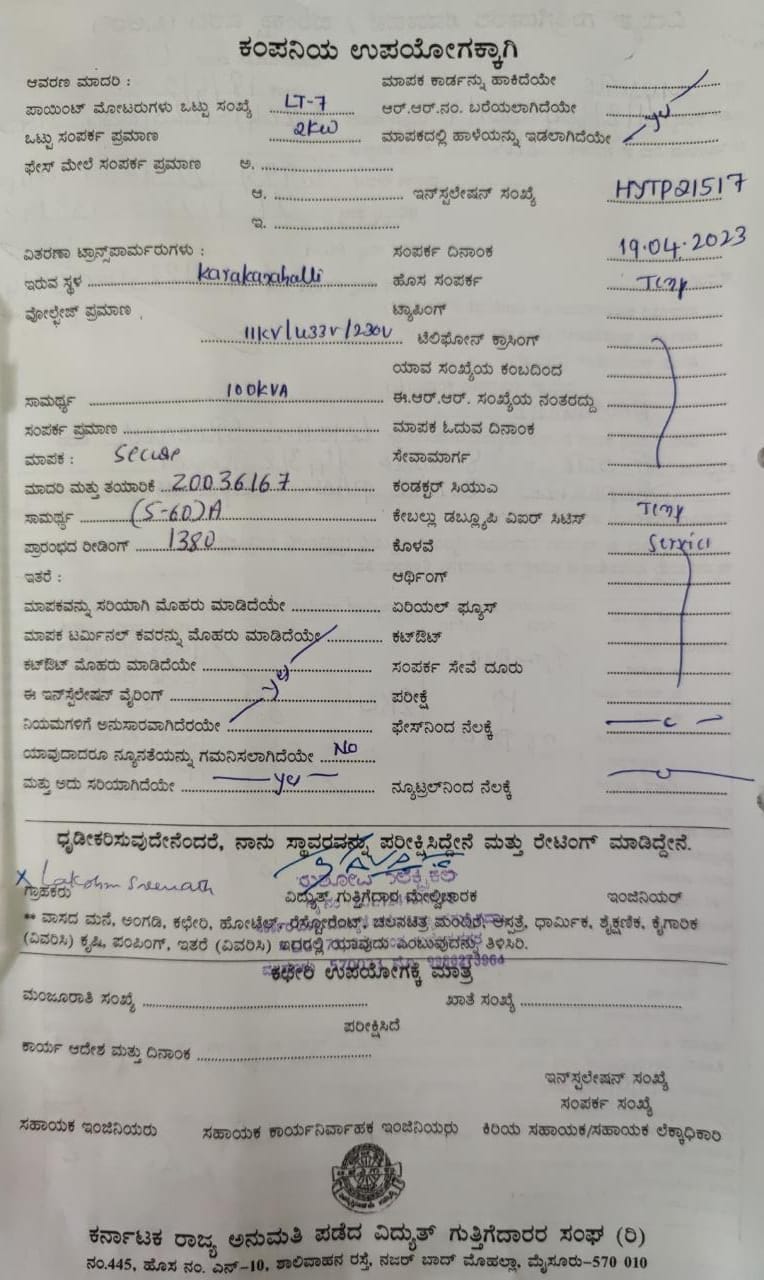 ಕಂಪನಿಯ ಉಪಯೋಗಕ್ಕಾಗಿ
ಆವರಣ ಮಾದರಿ : ಮಾಪಕ ಕಾರ್ಡನ್ನು ಹಾಕಿದೆಯೇ
ಪಾಯಿಂಟ್ ಮೋಟರುಗಳು ಒಟ್ಟು ಸಂಖ್ಯೆ LT-7 ಆರ್.ಆರ್.ನಂ. ಬರೆಯಲಾಗಿದೆಯೇ
ಒಟ್ಟು ಸಂಪರ್ಕ ಪ್ರಮಾಣ 2KW ಮಾಪಕದಲ್ಲಿ ಹಾಳೆಯನ್ನು ಇಡಲಾಗಿದೆಯೇ yes
ಫೇಸ್ ಮೇಲೆ ಸಂಪರ್ಕ ಪ್ರಮಾಣ ಅ.
ಆ. ಇನ್‌ಸ್ಟಲೇಷನ್ ಸಂಖ್ಯೆ HJTP21517
ಇ.
ವಿತರಣಾ ಟ್ರಾನ್ಸ್‌ಪಾರ್ಮರುಗಳು : ಸಂಪರ್ಕ ದಿನಾಂಕ 19.04.2023
ಇರುವ ಸ್ಥಳ Karakanahalli ಹೊಸ ಸಂಪರ್ಕ Temp
ವೋಲ್ಟೇಜ್ ಪ್ರಮಾಣ ಟ್ಯಾಪಿಂಗ್
11KV/433V/230V ಟೆಲಿಫೋನ್ ಕ್ರಾಸಿಂಗ್
ಯಾವ ಸಂಖ್ಯೆಯ ಕಂಬದಿಂದ
ಸಾಮರ್ಥ್ಯ 100KVA ಈ.ಆರ್.ಆರ್. ಸಂಖ್ಯೆಯ ನಂತರದ್ದು
ಸಂಪರ್ಕ ಪ್ರಮಾಣ ಮಾಪಕ ಓದುವ ದಿನಾಂಕ
ಮಾಪಕ : Secure ಸೇವಾಮಾರ್ಗ
ಮಾದರಿ ಮತ್ತು ತಯಾರಿಕೆ 20036167 ಕಂಡಕ್ಟರ್ ಸಿಯುಎ
ಸಾಮರ್ಥ್ಯ (5-60)A ಕೇಬಲ್ಲು ಡಬ್ಲ್ಯೂಪಿ ವಿಐರ್ ಸಿಟಿಸ್ Temp
ಪ್ರಾರಂಭದ ರೀಡಿಂಗ್ 1380 ಕೊಳವೆ Service
ಇತರೆ : ಆರ್ಥಿಂಗ್
ಮಾಪಕವನ್ನು ಸರಿಯಾಗಿ ಮೊಹರು ಮಾಡಿದೆಯೇ ಏರಿಯಲ್ ಫ್ಯೂಸ್
ಮಾಪಕ ಟರ್ಮಿನಲ್ ಕವರನ್ನು ಮೊಹರು ಮಾಡಿದೆಯೇ ಕಟ್‌ಔಟ್
ಕಟ್‌ಔಟ್ ಮೊಹರು ಮಾಡಿದೆಯೇ ಸಂಪರ್ಕ ಸೇವೆ ದೂರು
ಈ ಇನ್‌ಸ್ಟೆಲೇಷನ್ ವೈರಿಂಗ್ yes ಪರೀಕ್ಷೆ
ನಿಯಮಗಳಿಗೆ ಅನುಸಾರವಾಗಿದೆರಯೇ ಫೇಸ್‌ನಿಂದ ನೆಲಕ್ಕೆ
ಯಾವುದಾದರೂ ನ್ಯೂನತೆಯನ್ನು ಗಮನಿಸಲಾಗಿದೆಯೇ No
ಮತ್ತು ಅದು ಸರಿಯಾಗಿದೆಯೇ yes ನ್ಯೂಟ್ರಲ್‌ನಿಂದ ನೆಲಕ್ಕೆ
ಧೃಡೀಕರಿಸುವುದೇನೆಂದರೆ, ನಾನು ಸ್ಥಾವರವನ್ನು ಪರೀಕ್ಷಿಸಿದ್ದೇನೆ ಮತ್ತು ರೇಟಿಂಗ್ ಮಾಡಿದ್ದೇನೆ.
ಗ್ರಾಹಕರು ವಿದ್ಯುತ್ ಗುತ್ತಿಗೆದಾರ ಮೇಲ್ವಿಚಾರಕ ಇಂಜಿನಿಯರ್
** ವಾಸದ ಮನೆ, ಅಂಗಡಿ, ಕಛೇರಿ, ಹೋಟೆಲ್, ರೆಸ್ಟೋರೆಂಟ್, ಚಲನಚಿತ್ರ ಮಂದಿರ, ಆಸ್ಪತ್ರೆ, ಧಾರ್ಮಿಕ, ಶೈಕ್ಷಣಿಕ, ಕೈಗಾರಿಕ
(ವಿವರಿಸಿ) ಕೃಷಿ, ಪಂಪಿಂಗ್, ಇತರೆ (ವಿವರಿಸಿ) ಇದರಲ್ಲಿ ಯಾವುದು ಎಂಬುವುದನ್ನು ತಿಳಿಸಿರಿ.
ಕಛೇರಿ ಉಪಯೋಗಕ್ಕೆ ಮಾತ್ರ
ಮಂಜೂರಾತಿ ಸಂಖ್ಯೆ ಖಾತೆ ಸಂಖ್ಯೆ
ಪರೀಕ್ಷಿಸಿದೆ
ಕಾರ್ಯ ಆದೇಶ ಮತ್ತು ದಿನಾಂಕ
ಇನ್‌ಸ್ಪಲೇಷನ್ ಸಂಖ್ಯೆ
ಸಂಪರ್ಕ ಸಂಖ್ಯೆ
ಸಹಾಯಕ ಇಂಜಿನಿಯರು ಸಹಾಯಕ ಕಾರ್ಯನಿರ್ವಾಹಕ ಇಂಜಿನಿಯರು ಕಿರಿಯ ಸಹಾಯಕ/ಸಹಾಯಕ ಲೆಕ್ಕಾಧಿಕಾರಿ
ಕರ್ನಾಟಕ ರಾಜ್ಯ ಅನುಮತಿ ಪಡೆದ ವಿದ್ಯುತ್ ಗುತ್ತಿಗೆದಾರರ ಸಂಘ (ರಿ)
ನಂ.445, ಹೊಸ ನಂ. ಎನ್-10, ಶಾಲಿವಾಹನ ರಸ್ತೆ, ನಜರ್ ಬಾದ್ ಮೊಹಲ್ಲಾ, ಮೈಸೂರು-570 010